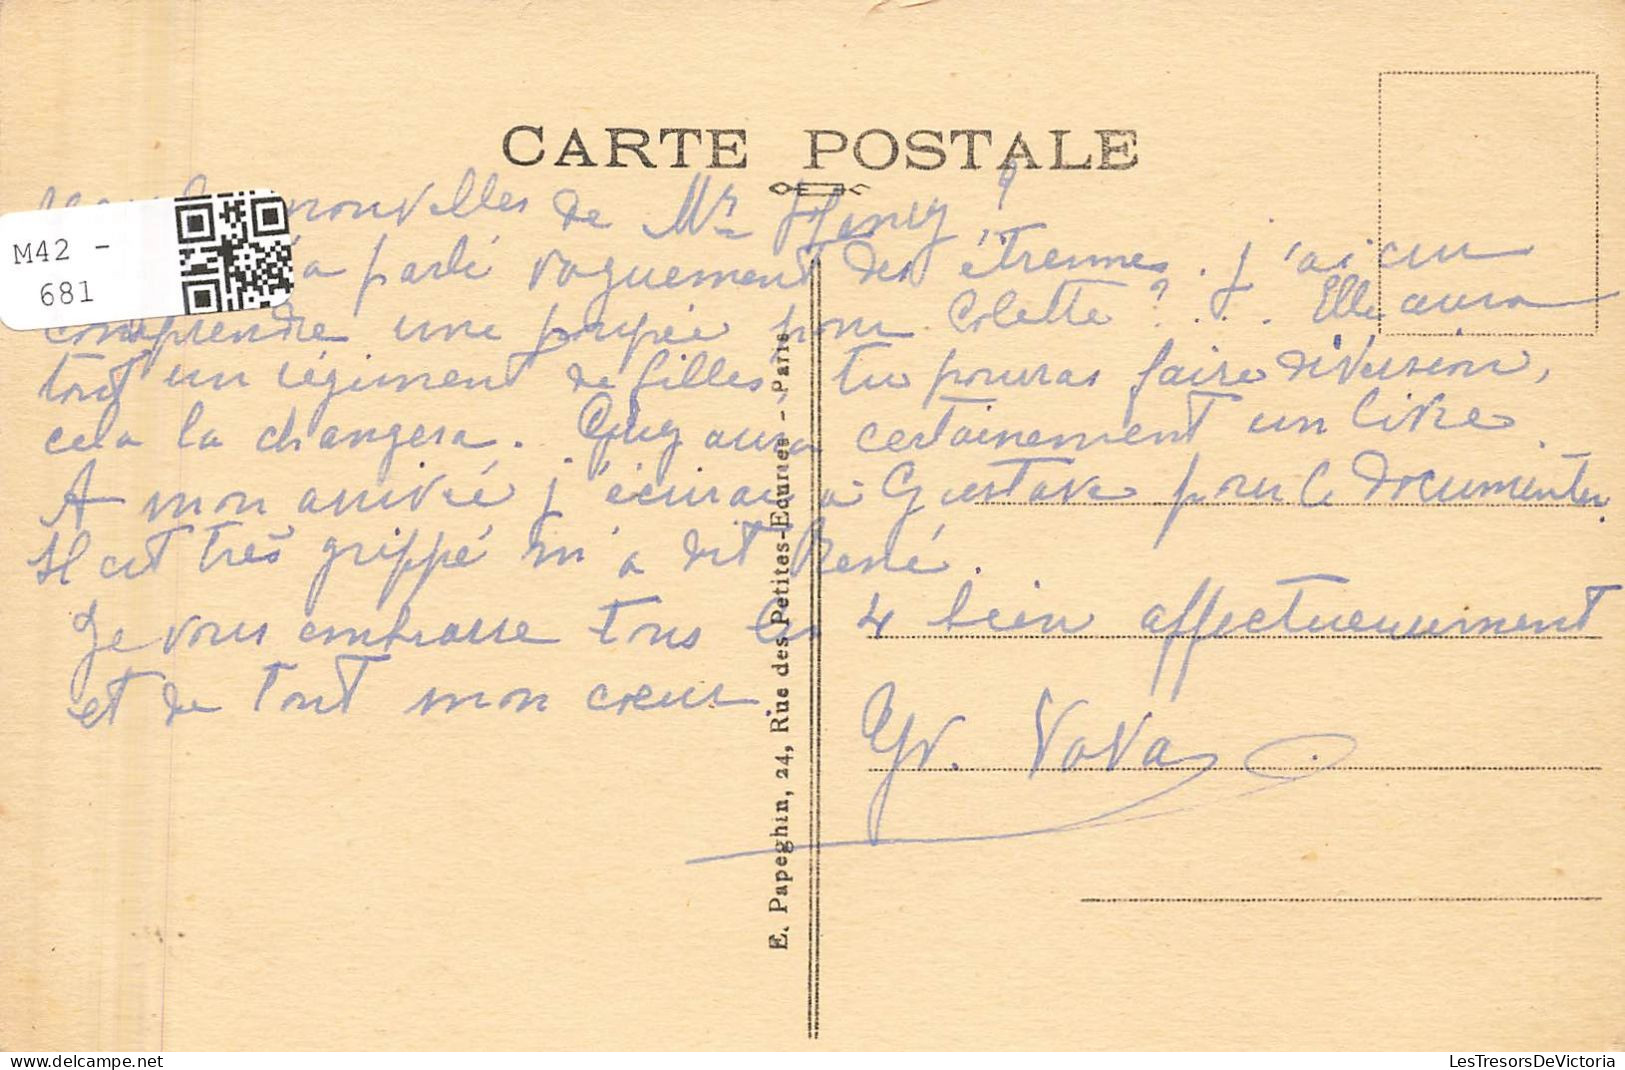 CARTE POSTALE
nouvelles de Mr Henry ?
M42 -
681
a parlé vaguement des étrennes. j'ai cru
comprendre une poupée pour Colette ? ... Elle aura
tout un régiment de filles, tu pourras faire diversion,
cela la changera. Guy aura certainement un livre.
A mon arrivée j'écrirai à Gustave pour le documenter.
Il est très grippé m'a dit René.
Je vous embrasse tous les 4 bien affectueusement
et de tout mon cœur.
Vova
E. Papeghin, 24, Rue des Petites-Ecuries - Paris
LesTresorsDeVictoria